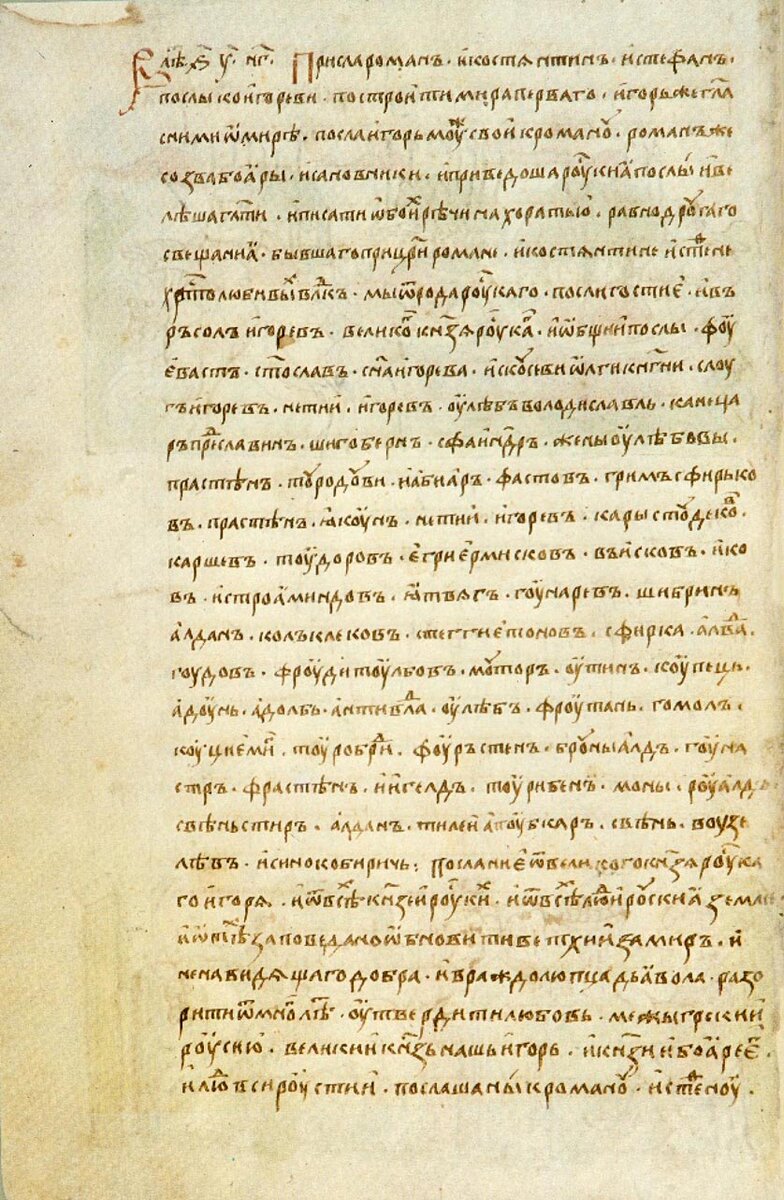 В лѣ҃ ҂ѕ҃ у҃ н҃г Присла романъ · и костянтинъ · и стефанъ ·
послы ко игореви · построити мира перваго · игорь же гл҃а
с ними ѡ мирѣ · посла игорь моуж свои к романоу · романъ же
созва боѧры · и сановники · и приведоша роускиꙗ послы и ве
лѣша гл҃ати · и писати ѡбоих рѣчи на хоратью · равно дроугаго
свещаниа · бывшаго при цр҃и романе · и костянтине и стефане
хрс҃толюбивых влд҃къ · мы ѿ рода роускаго · посли и гостие · ивъ
ръ солъ игоревъ · великог кнѧзя роускаг · и ѡбщии послы · фоу
евастъ · ст҃ославъ · сн҃а игорева · искоусеви ѡлги кнг҃ни · слоу
гъ игоревъ · нетии · игоревъ · оулѣбъ володиславль · канеца
ръ преславинъ · шигобернъ · сфаиндръ · жены оулѣбовы ·
прастѣнъ · тоуродоуви · либиаръ · фастовъ · гримъ сфирько
въ · прастѣнъ · ꙗкоунъ · нетии · игоревъ · кары стоудековъ ·
каршевъ · тоудоровъ · егриермисковъ · въисковъ · ико
въ · истроаминдовъ · ꙗтвягъ · гоунаревъ · шибринъ
алданъ · колъклековъ · стеггиетоновъ · сфирка · алвад
гоудовъ · фроуди тоулбовъ · моуторъ · оутинъ · коупець ·
адоунь · адолбь · антивлад · оулѣбъ · фроутань · гомолъ ·
коуци емиг · тоуробрид · фоуръстенъ · броуны алдъ · гоуна
стръ · фрастѣнъ · ингелдъ · тоурибенъ · моны · роуалдъ
свѣньстиръ · алданъ · тилеи апоубкаръ · свѣнь · воузе
лѣвъ · исинокобиричь : послание ѿ великого кнѧзя роуска
го игоря · и ѿ всѣх кнѧзеи роускых · и ѿ всѣх людии роускиꙗ земли
и ѿ тѣх заповедано ѡбновити ветхии замиръ · и
ненавидящаго добра · и враждолюпца дьавола · разо
рити ѿ мног лѣт · оутвердити любовь · межы грекии
роусию · великии кнѧзь нашь игорь · и кнѧзи и боаре ег
и люд вси роустии · послаша ны к романоу · и стефаноу ·